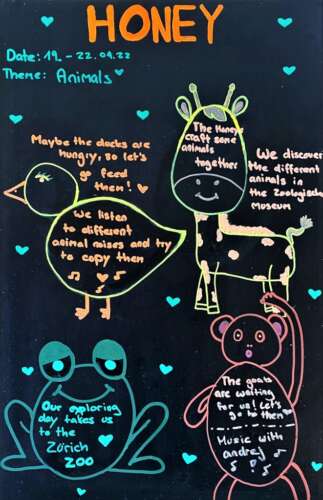 HONEY
Date: 19. - 22.04.22
Theme: Animals
Maybe the ducks are
hungry, so let's
go feed
them!
We listen
to different
animal noises and try
to copy them
The Honeys
craft some
animals
together
We discover
the different
animals in
the Zoologische
Museum
Our exploring
day takes us
to the
Zürich
ZOO
The goats
are waiting
for us! Let's
go to them
Music with
andrej